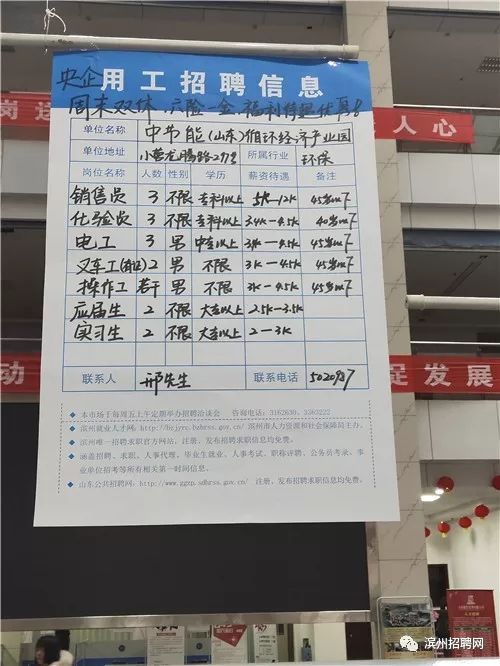 央企用工招聘信息
周末双休 六险一金 福利待遇优厚!
人心
单位名称 中节能(山东)循环经济产业园
单位地址 小营龙腾路279 所属行业 环保
岗位名称 人数 性别 学历 薪资待遇 备注
销售员 3 不限 专科以上 5k-12k 45岁以下
化验员 3 不限 专科以上 3.4k-4.5k 40岁以下
电工 3 男 中专以上 3.4k-4.5k 45岁以下
叉车工 2 男 不限 3k-4.5k 45岁以下
操作工 若干 男 不限 3k-4.5k 45岁以下
应届生 2 不限 大专以上 2.5k-3.5k
实习生 2 不限 大专以上 2-3k
动 促发展
联系人 邢先生 联系电话
本市场于每周五上午定期举办招聘洽谈会 咨询电话:3162630、3363222
滨州就业人才网:http://bzjyrc.bzhrss.gov.cn/ 滨州市人力资源和社会保障局主办。
滨州唯一招聘求职官方网站,注册、发布招聘求职信息均免费。
涵盖招聘、求职、人事代理、毕业生就业、人事考试、职称评聘、公务员考录、事
业单位招考等所有相关第一时间信息。
山东公共招聘网:http://www.ggzp.sdhrss.gov.cn/ 注册、发布招聘求职信息均免费。
滨州招聘网